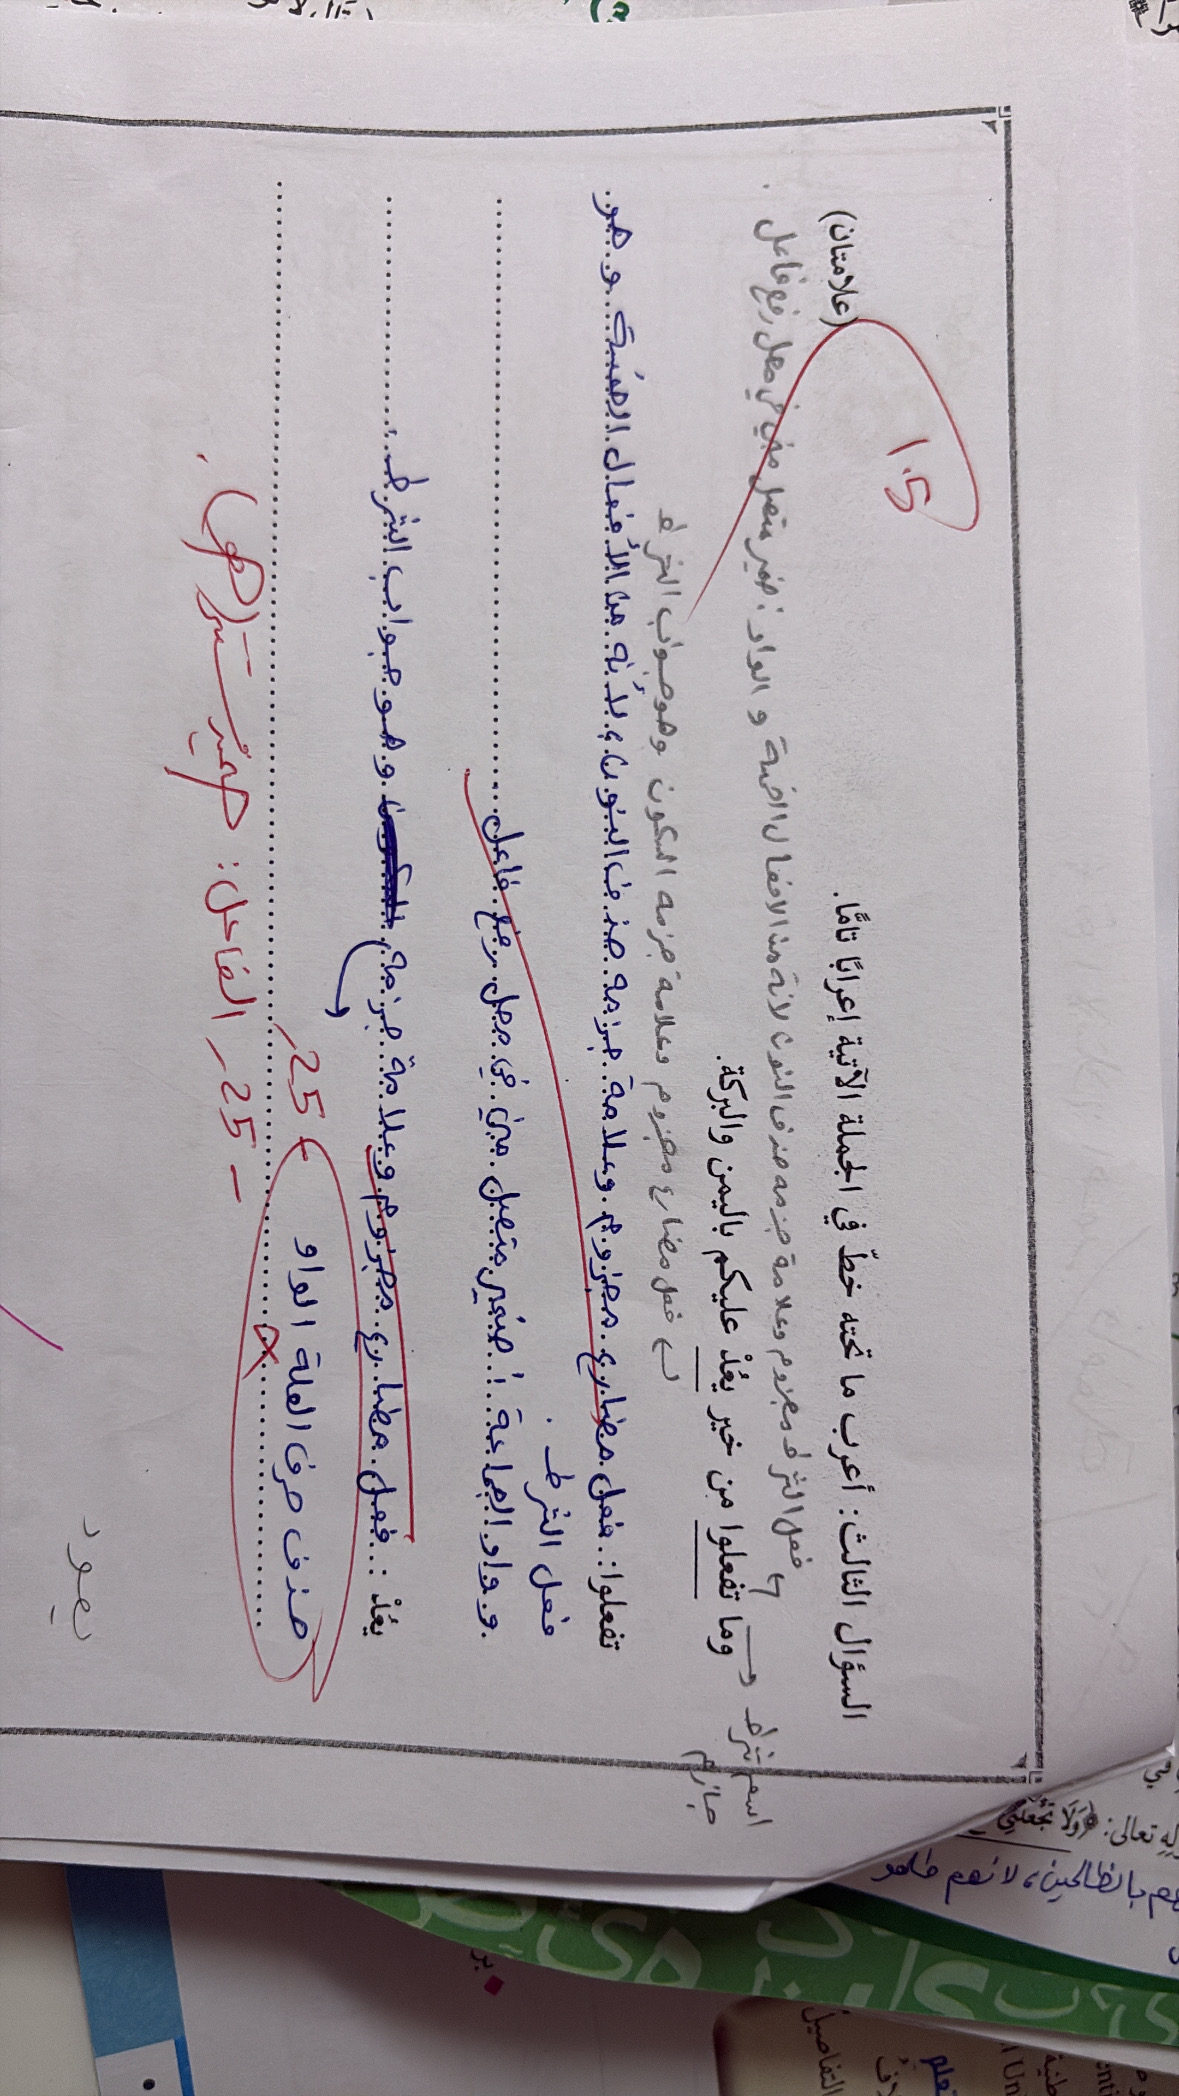 السؤال الثالث: أعرب ما تحته خطّ في الجملة الآتية إعرابًا تامًّا. (علامتان)
1.5
فعل الشرط مجزوم وعلامة جزمه حذف النون لانه من الافعال الخمسة و الواو: ضمير متصل مبني في محل رفع فاعل.
وما تفعلوا من خير يعُدْ عليكم باليمن والبركة.
اسم شرط
جازم
فعل مضارع مجزوم وعلامة جزمه السكون وهو جواب الشرط
تفعلوا: فعل مضارع مجزوم وعلامة جزمه حذف النون، لأنه من الأفعال الخمسة وهو
فعل الشرط.
و واو الجماعة: ضمير متصل مبني في محل رفع فاعل
يعُدْ: فعل مضارع مجزوم وعلامة جزمه وهو جواب الشرط.
حذف حرف العلة الواو
,25
- 25, الفاعل: ضمير مستتر (هو).
يعود
وله تعالى: ﴿وَلَا تَجْعَلْنِي
هم بالظالمين، لانهم ظلمو
التفاصيل